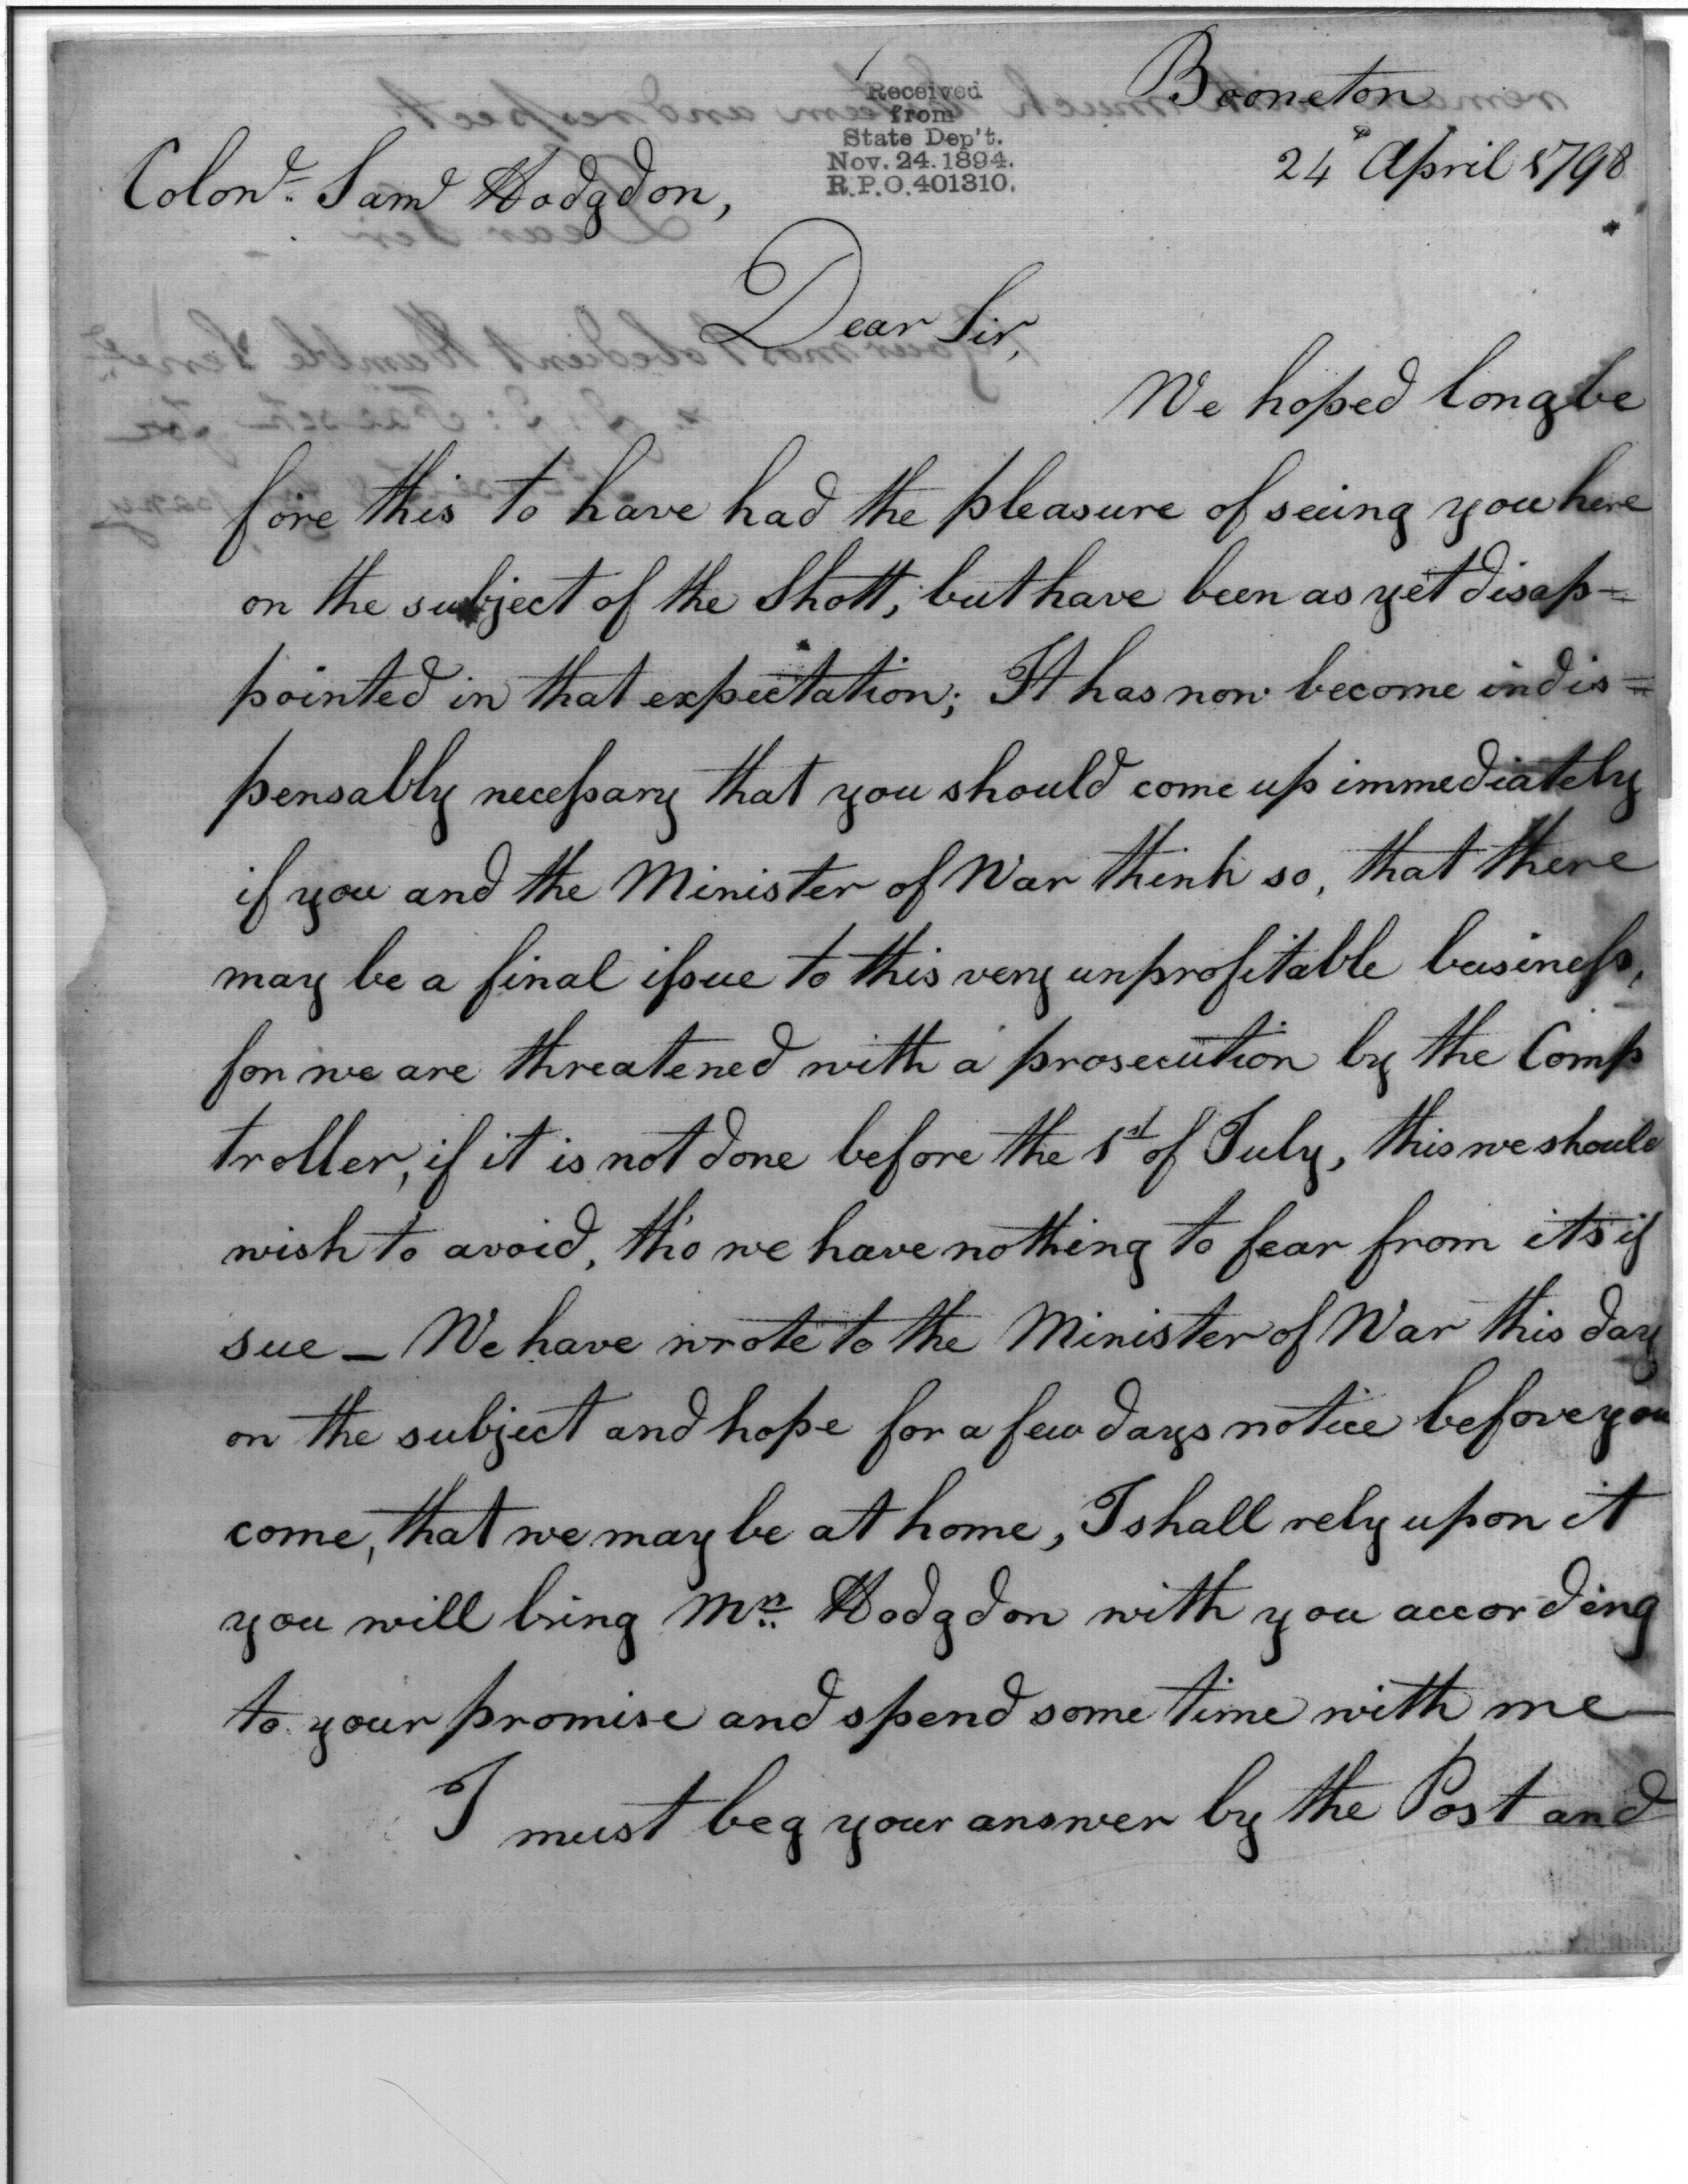 Booneton
24th April 1798
Received
from
State Dep't.
Nov. 24. 1894.
R.P.O. 401310.
Colonl. Saml Hodgdon,
Dear Sir,
We hoped long be
fore this to have had the pleasure of seeing you here
on the subject of the Shott, but have been as yet disap=
pointed in that expectation; It has now become indis=
pensably necessary that you should come up immediately
if you and the Minister of War think so, that there
may be a final issue to this very unprofitable business,
for we are threatened with a prosecution by the Comp
troller, if it is not done before the 1st of July, this we should
wish to avoid, tho we have nothing to fear from its is
sue — We have wrote to the Minister of War this day
on the subject and hope for a few days notice before you
come, that we may be at home, I shall rely upon it
you will bring Mrs. Hodgdon with you according
to your promise and spend some time with me —
I must beg your answer by the Post and